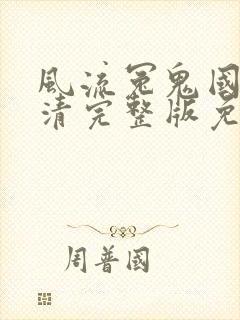 風流冤鬼國
清完整版免
周普國